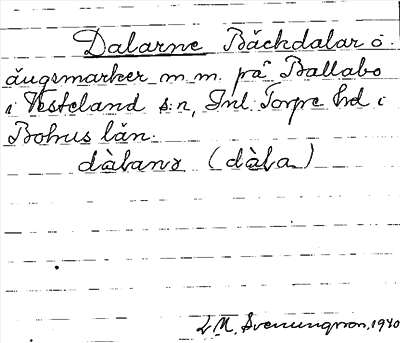 Dalarne Bäckdalar o.
ängsmarker m. m. på Ballabo
i Västeland s:n, Inl. Torpe hd i
Bohus län.
dàlanɜ (dàla)
L M. Svenungsson, 1940